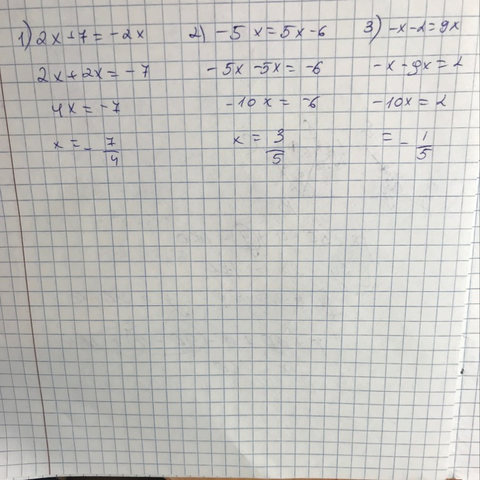 1) 2x+7=-2x
2x+2x=-7
4x=-7
x=-7/4
2) -5x=5x-6
-5x-5x=-6
-10x=-6
x=3/5
3) -x-2=9x
-x-9x=2
-10x=2
=-1/5